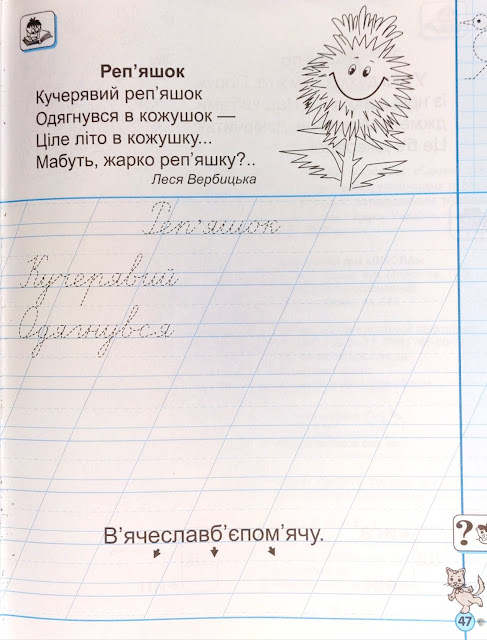 Реп’яшок
Кучерявий реп’яшок
Одягнувся в кожушок —
Ціле літо в кожушку...
Мабуть, жарко реп’яшку?..
Леся Вербицька
Реп’яшок
Кучерявий
Одягнувся
В’ячеславб’єпом’ячу.
?
47